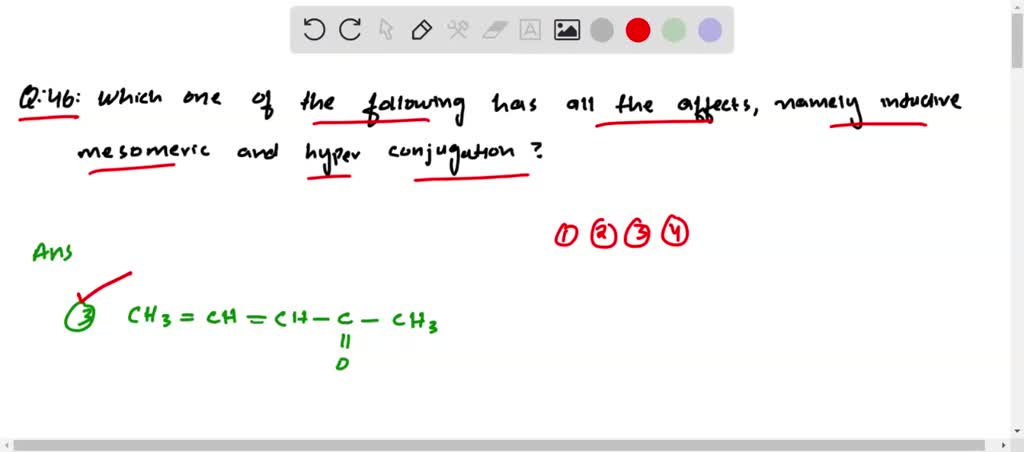 Q:46: Which one of the following has all the affects, namely inductive
mesomeric and hyper conjugation?
① ② ③ ④
Ans
③ CH3 = CH = CH - C - CH3
||
O